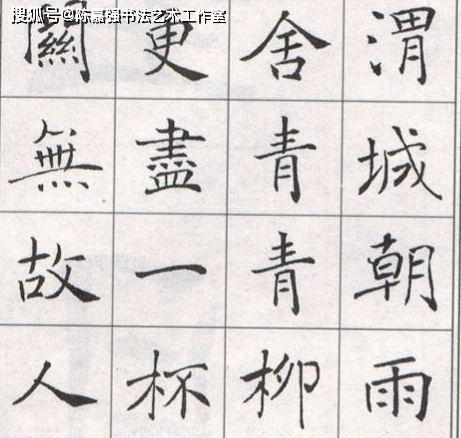 搜狐号@陈嘉强书法艺术工作室
渭城朝雨
舍青青柳
更盡一杯
關無故人